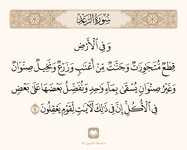 سورة الرعد
وَفِي الْأَرْضِ
قِطَعٌ مُّتَجَاوِرَاتٌ وَجَنَّاتٌ مِّنْ أَعْنَابٍ وَزَرْعٌ وَنَخِيلٌ صِنْوَانٌ
وَغَيْرُ صِنْوَانٍ يُسْقَىٰ بِمَاءٍ وَاحِدٍ وَنُفَضِّلُ بَعْضَهَا عَلَىٰ بَعْضٍ
فِي الْأُكُلِ إِنَّ فِي ذَٰلِكَ لَآيَاتٍ لِّقَوْمٍ يَعْقِلُونَ ٤